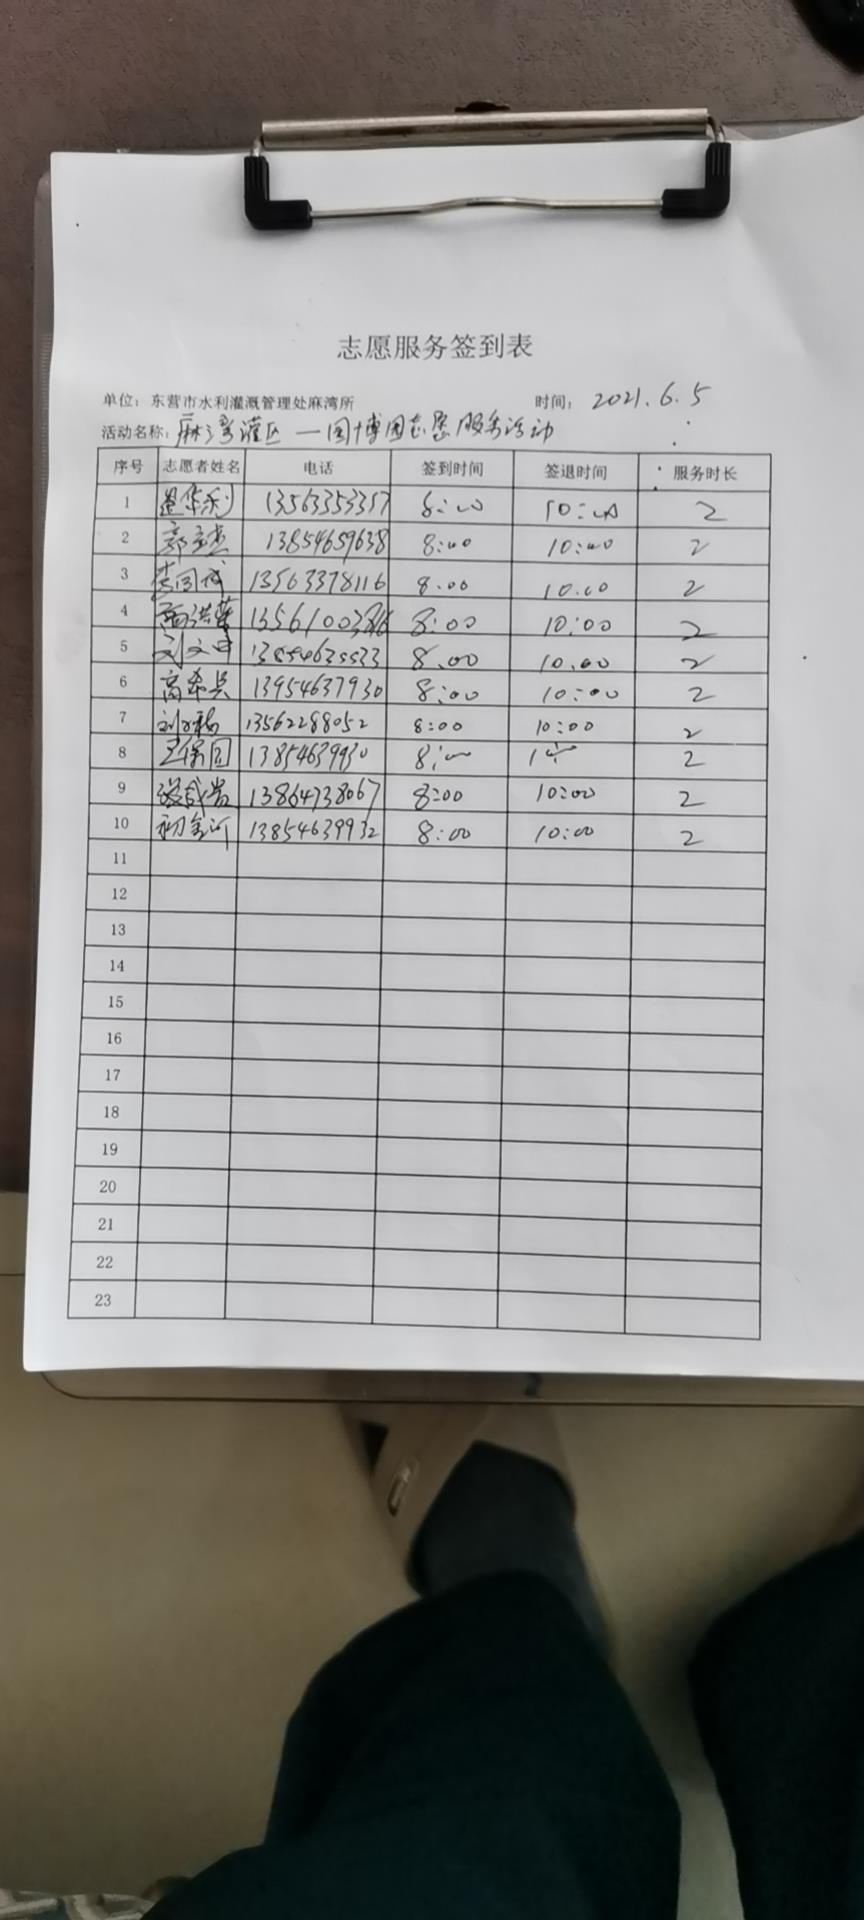 志愿服务签到表
单位：东营市水利灌溉管理处麻湾所 时间：2021.6.5
活动名称：麻湾灌区一园博园志愿服务活动
序号 志愿者姓名 电话 签到时间 签退时间 服务时长
1 华利 13563353317 8:00 10:00 2
2 郭 13854659638 8:00 10:00 2
3 13563378116 8:00 10:00 2
4 13561003816 8:00 10:00 2
5 刘文 8:00 10:00 2
6 高希 13954637930 8:00 10:00 2
7 刘 13562288052 8:00 10:00 2
8 王保国 13854639930 8:00 2
9 13864738067 8:00 10:00 2
10 初金河 13854639932 8:00 10:00 2
11
12
13
14
15
16
17
18
19
20
21
22
23